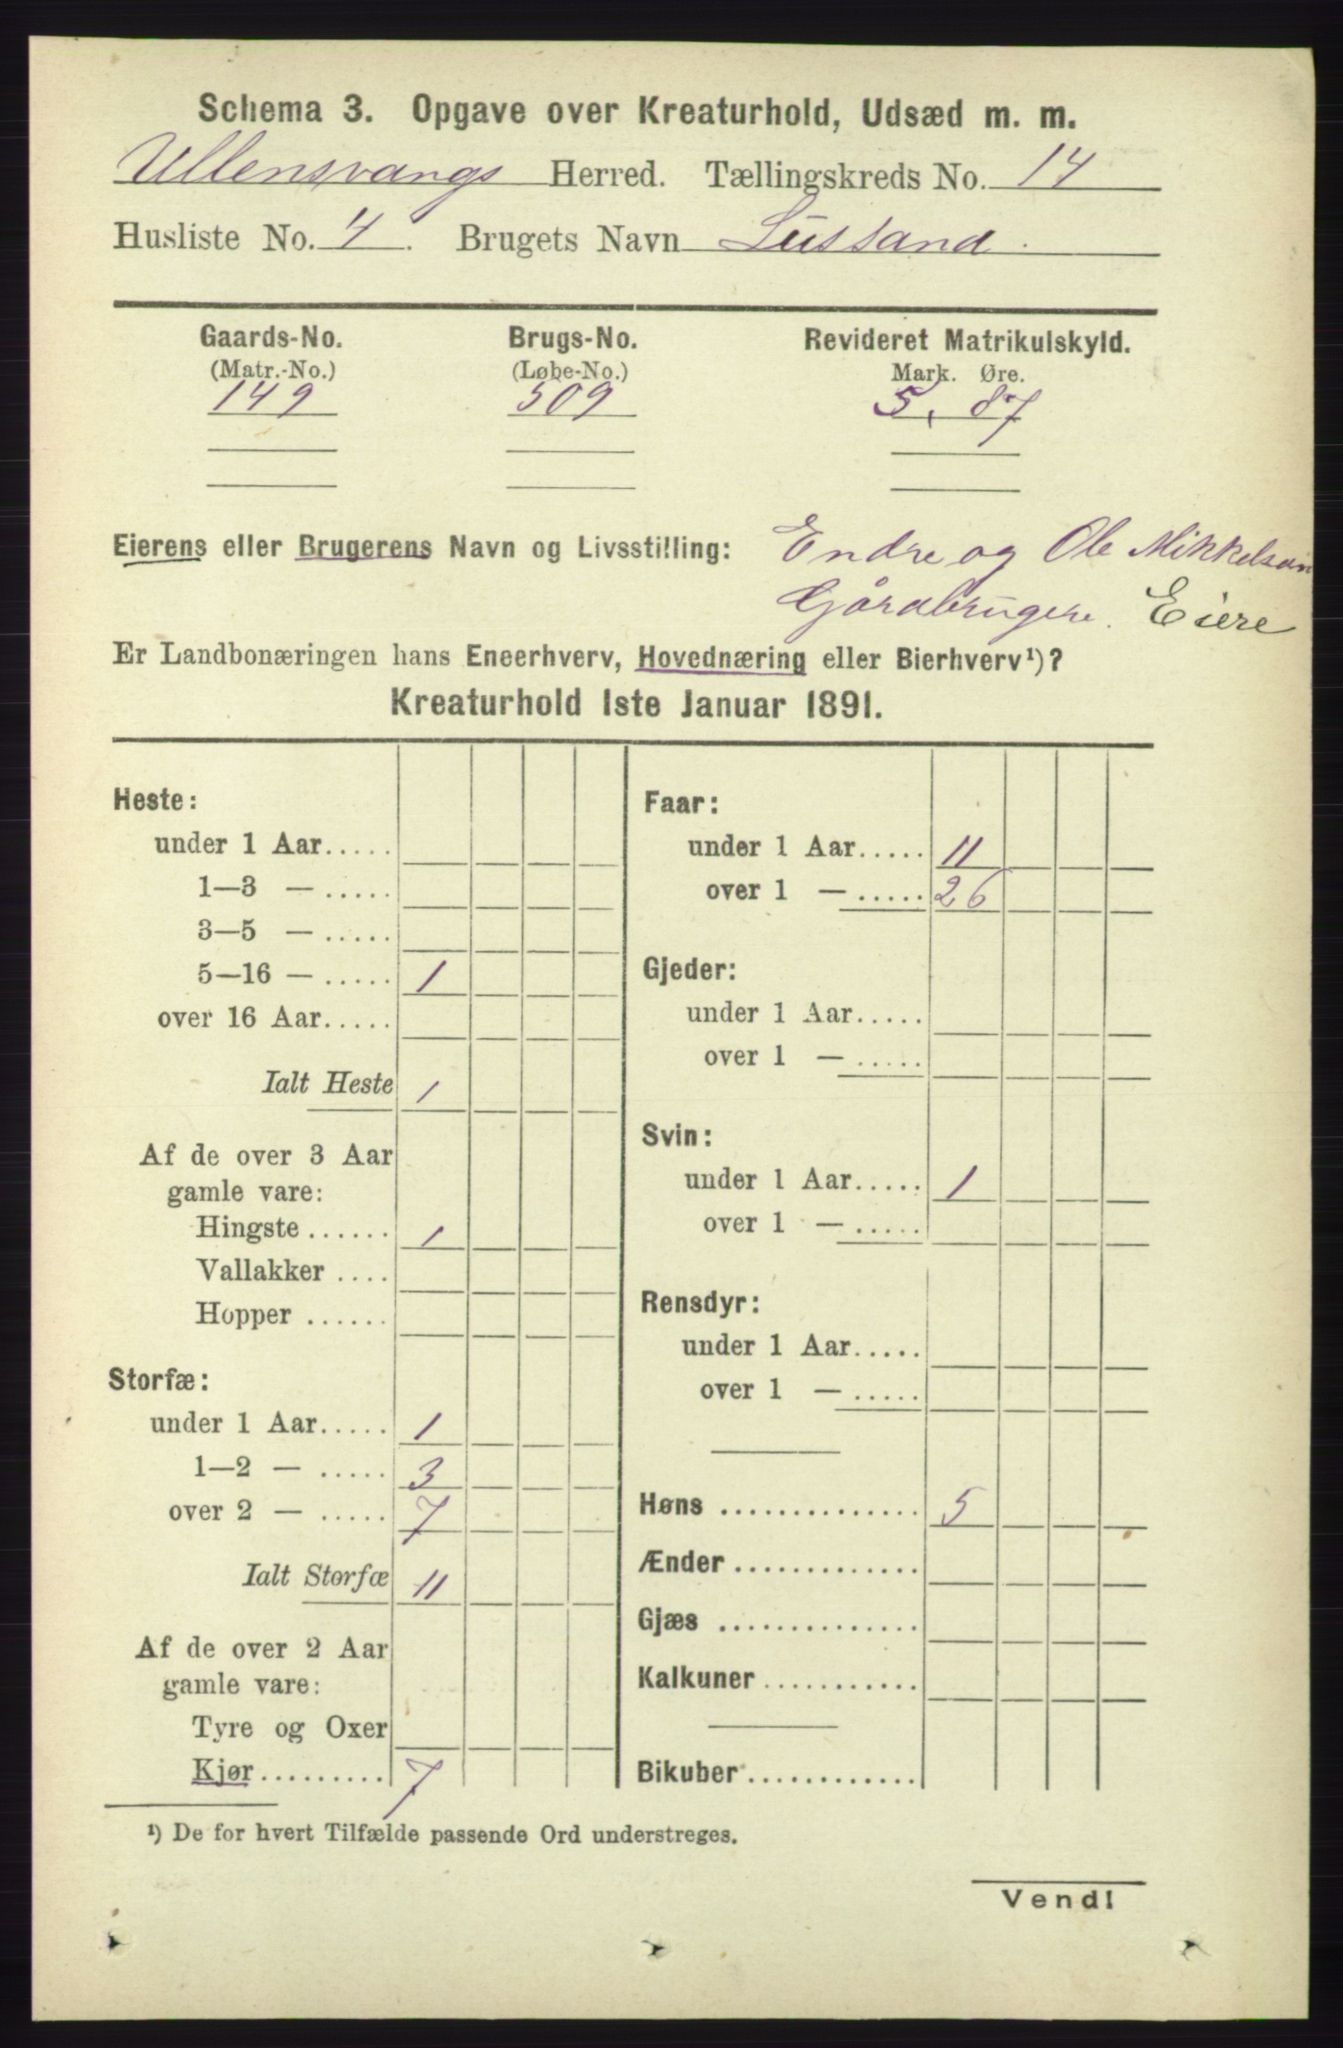 Schema 3. Opgave over Kreaturhold, Udsæd m. m.
Ullensvangs Herred. Tællingskreds No. 14
Husliste No. 4. Brugets Navn Lussand.
Gaards-No. Brugs-No. Revideret Matrikulskyld.
(Matr.-No.) (Løbe-No.) Mark. Øre.
149 509 5, 87
Eierens eller Brugerens Navn og Livsstilling: Endre og Ole Mikkelsen
Gårdbrugere. Eiere
Er Landbonæringen hans Eneerhverv, Hovednæring eller Bierhverv¹)?
Kreaturhold 1ste Januar 1891.
Heste:
under 1 Aar.....
1—3 — .....
3—5 — .....
5—16 — ..... 1
over 16 Aar.....
Ialt Heste 1
Af de over 3 Aar
gamle vare:
Hingste...... 1
Vallakker ....
Hopper ......
Storfæ:
under 1 Aar..... 1
1—2 — ..... 3
over 2 — ..... 7
Ialt Storfæ 11
Af de over 2 Aar
gamle vare:
Tyre og Oxer
Kjør......... 7
Faar:
under 1 Aar..... 11
over 1 — ..... 26
Gjeder:
under 1 Aar.....
over 1 — .....
Svin:
under 1 Aar..... 1
over 1 — .....
Rensdyr:
under 1 Aar.....
over 1 — .....
Høns .............. 5
Ænder .............
Gjæs ..............
Kalkuner...........
Bikuber............
¹) De for hvert Tilfælde passende Ord understreges.
Vend!